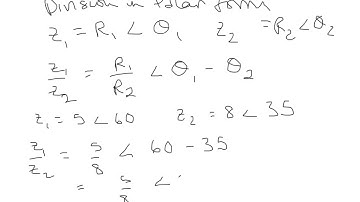 Division in Polar form
z₁ = R₁ ∠ θ₁ z₂ = R₂ ∠ θ₂
z₁/z₂ = R₁/R₂ ∠ θ₁ - θ₂
z₁ = 5 ∠ 60 z₂ = 8 ∠ 35
z₁/z₂ = 5/8 ∠ 60 - 35
= 5/8 ∠